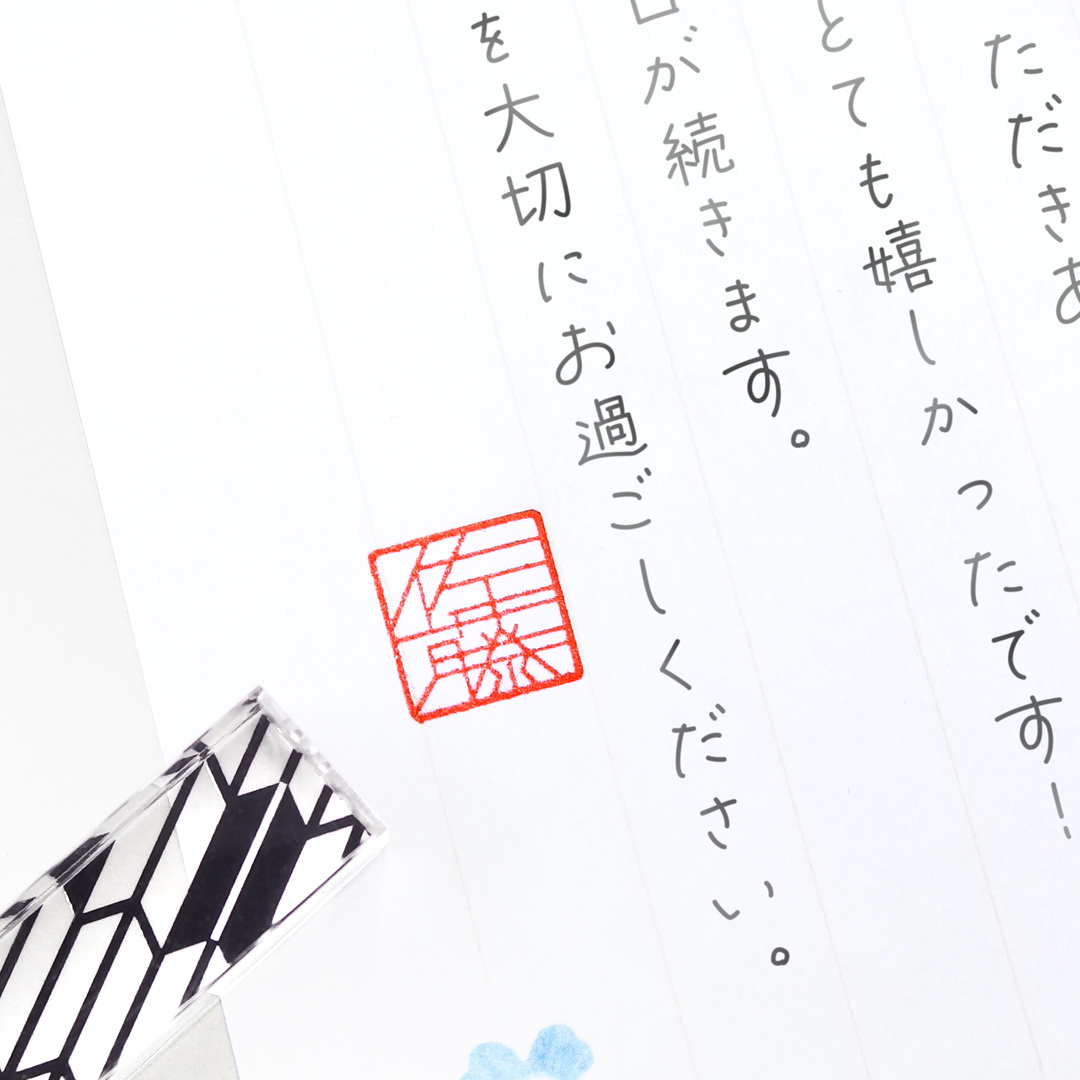 ただきあ
とても嬉しかったです!
が続きます。
を大切にお過ごしください。
佐藤